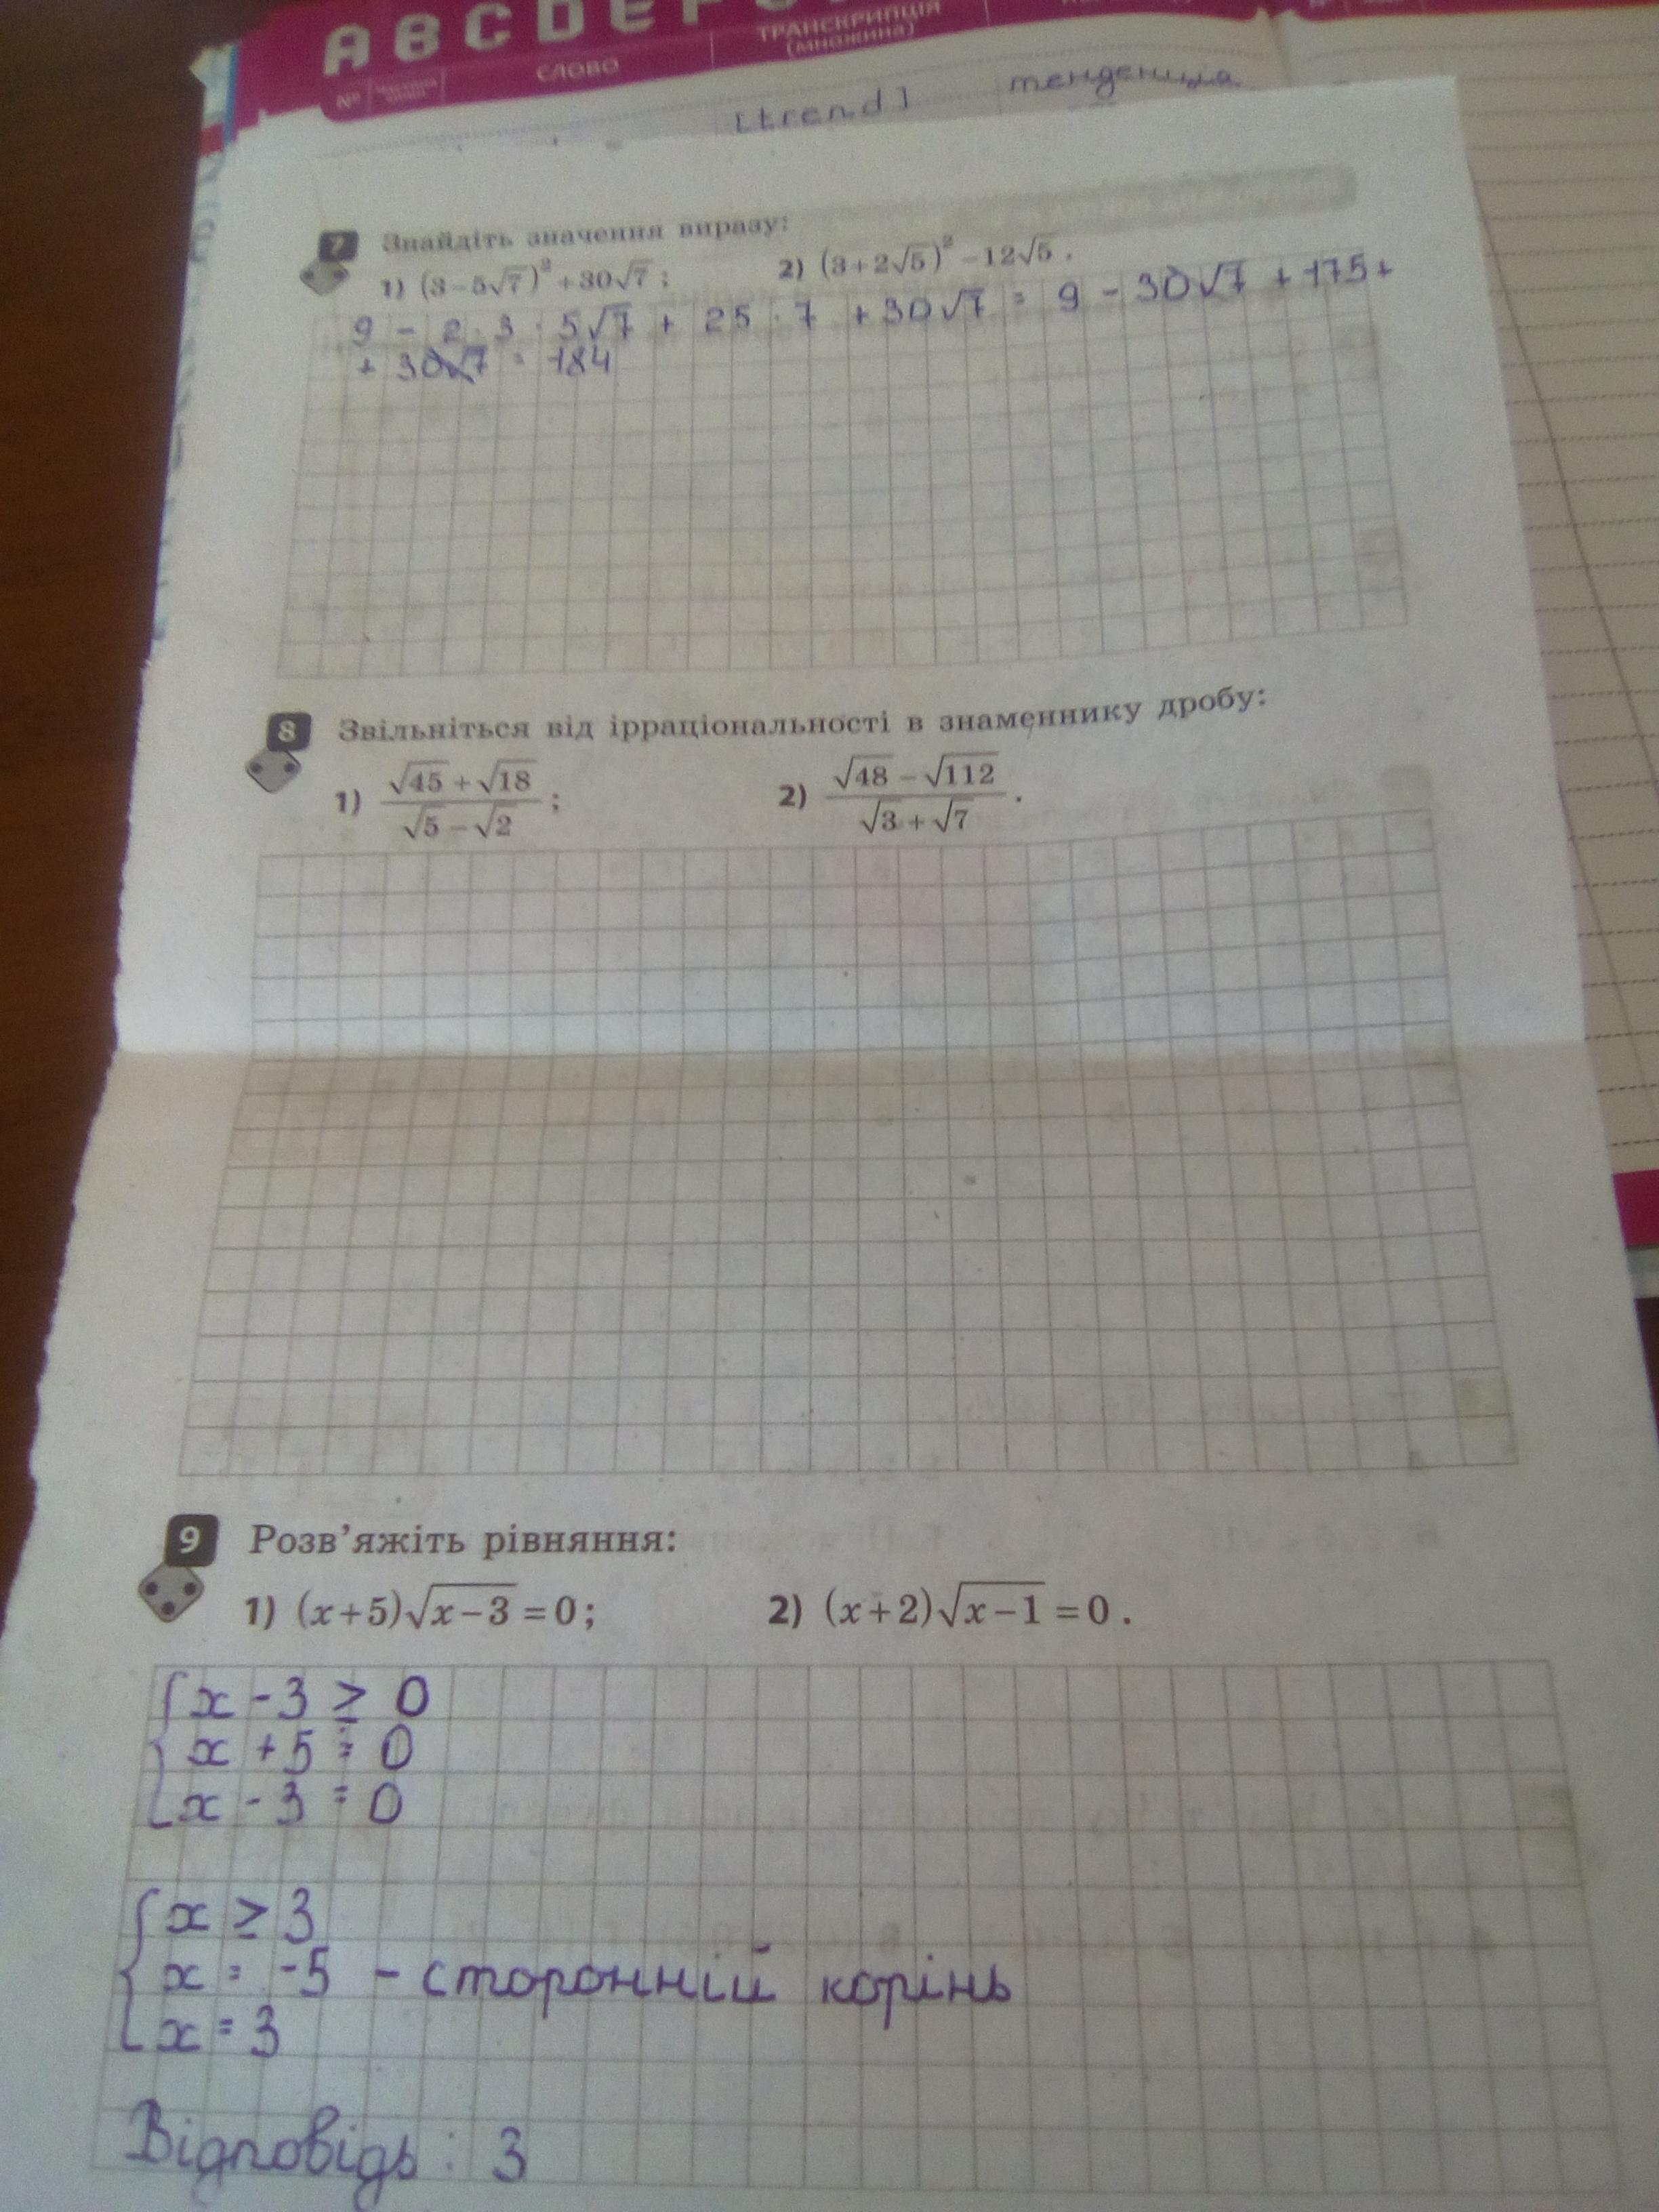 A B C D E F
№ СЛОВО ТРАНСКРИПЦІЯ (множина)
[trend] тенденція
7 Знайдіть значення виразу:
1) (3-5√7)² +30√7 ; 2) (3+2√5)² -12√5 .
9 - 2·3·5√7 + 25·7 +30√7 = 9 - 30√7 + 175+
+ 30√7 = 184
8 Звільніться від ірраціональності в знаменнику дробу:
1) (√45 + √18)/(√5 - √2) ; 2) (√48 - √112)/(√3 + √7) .
9 Розв’яжіть рівняння:
1) (x+5)√(x-3) = 0; 2) (x+2)√(x-1) = 0 .
x - 3 ≥ 0
x + 5 = 0
x - 3 = 0
x ≥ 3
x = -5 - сторонній корінь
x = 3
Відповідь : 3